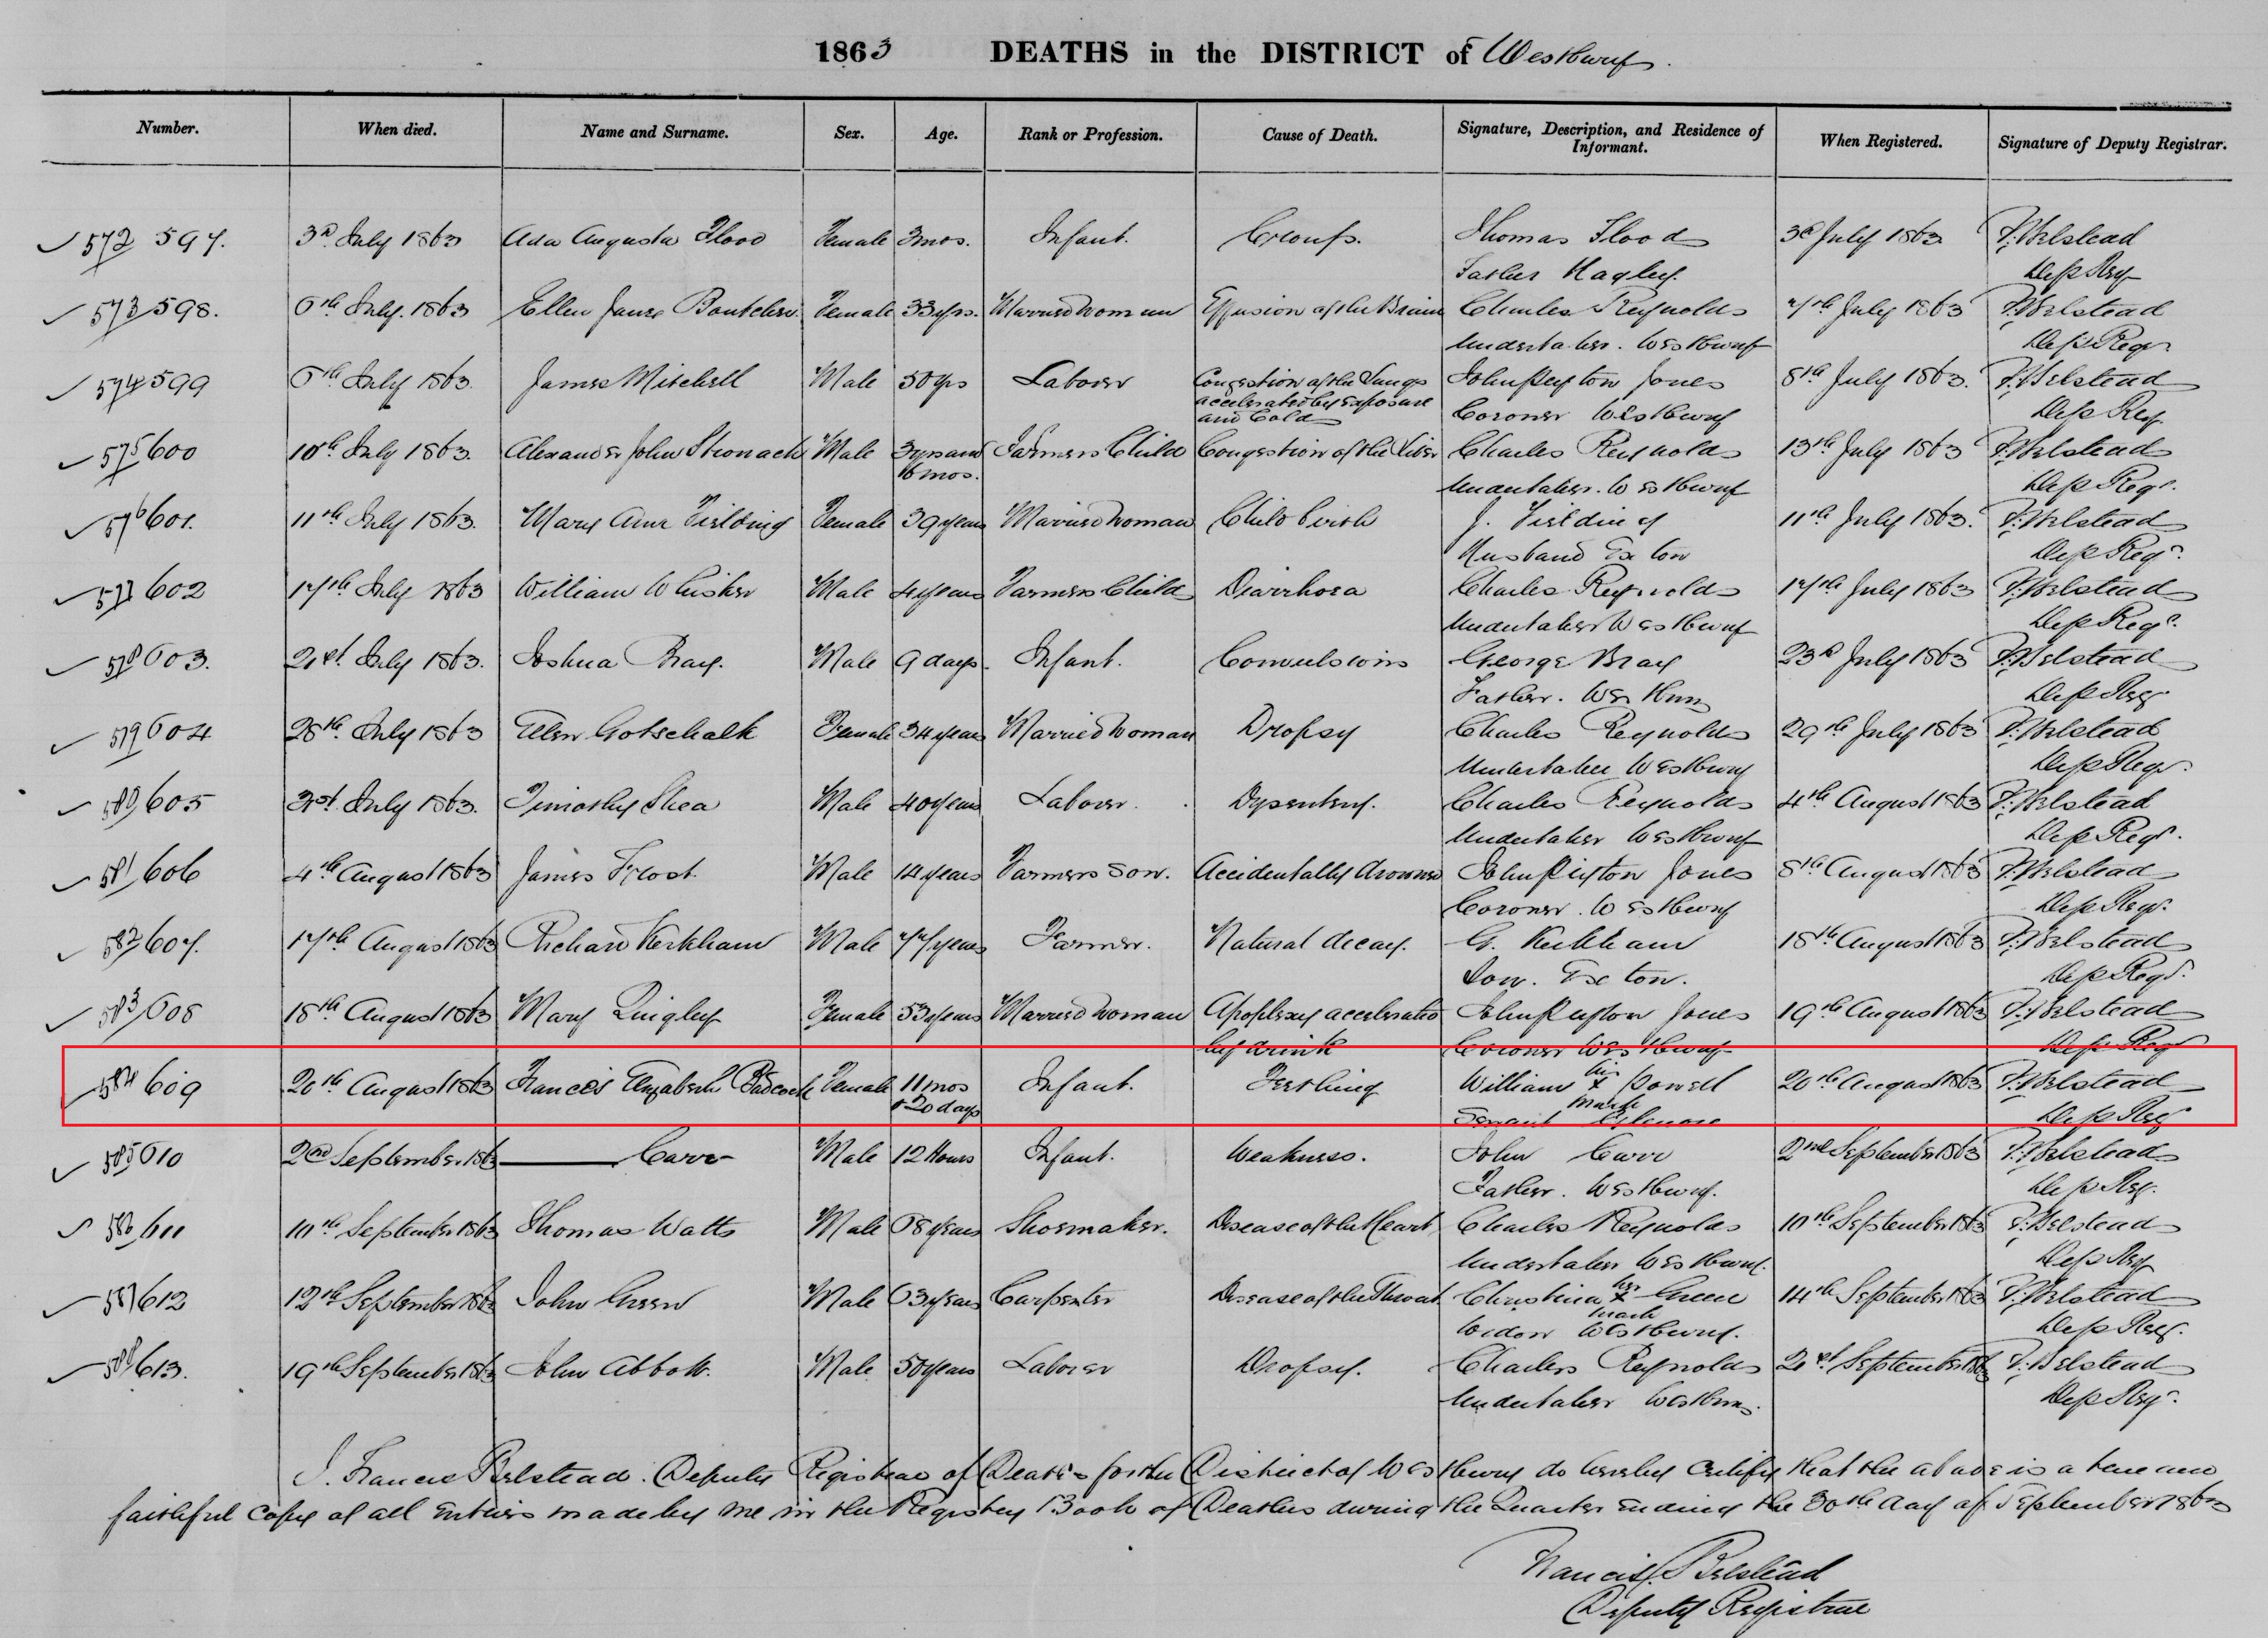 1863 DEATHS in the DISTRICT of Westbury.
Number. When died. Name and Surname. Sex. Age. Rank or Profession. Cause of Death. Signature, Description, and Residence of Informant. When Registered. Signature of Deputy Registrar.
572 597. 3d July 1863 Ada Augusta Flood Female 3mos. Infant. Croup. Thomas Flood 3d July 1863 F. Belstead
Father Hagley. Dep Reg
573 598. 6th July. 1863 Ellen Jane Boutcher Female 33yrs. Married Woman Effusion of the Brain Charles Reynolds 7th July 1863 F. Belstead
Undertaker. Westbury Dep Regr
574 599 6th July 1863 James Mitchell Male 50yrs Laborer Congestion of the Lungs John Peyton Jones 8th July 1863. F. Belstead
accelerated by exposure and Cold Coroner Westbury Dep Reg
575 600 10th July 1863. Alexander John Stronach Male 3yrs and Farmers Child Congestion of the Liver Charles Reynolds 13th July 1863 F. Belstead
6 mos. Undertaker. Westbury Dep Regr.
576 601. 11th July 1863. Mary Ann Fielding Female 39 years Married Woman Child birth J. Fielding 11th July 1863. F. Belstead
Husband Exton Dep Regr.
577 602 17th July 1863 William Whisker Male 4 years Farmers Child Diarrhoea Charles Reynolds 17th July 1863 F. Belstead
Undertaker Westbury Dep Regr.
578 603. 21st July 1863. Joshua Bray. Male 9 days Infant. Convulsions George Bray 23d July 1863 F. Belstead
Father. Westbury Dep Reg
579 604 28th July 1863 Ellen Gotschalk Female 34 years Married Woman Dropsy Charles Reynolds 29th July 1863 F. Belstead
Undertaker Westbury Dep Regr.
580 605 31st July 1863. Timothy Shea Male 40 years Laborer. Dysentery. Charles Reynolds 4th August 1863 F. Belstead
Undertaker Westbury Dep Regr.
581 606 4th August 1863 James Frost. Male 14 years Farmers Son. Accidentally drowned John Peyton Jones 8th August 1863 F. Belstead
Coroner. Westbury Dep Regr.
582 607. 17th August 1863 Richard Kirkham Male 77 years Farmer. Natural decay. G. Kirkham 18th August 1863 F. Belstead
Son. Exton. Dep Regr.
583 608 18th August 1863 Mary Quigley Female 53 years Married Woman Apoplexy accelerated John Peyton Jones 19th August 1863 F. Belstead
by drink Coroner Westbury Dep Regr
584 609 20th August 1863 Frances Elizabeth Badcock Female 11 mos Infant. Teething William his x Powell 20th August 1863 F. Belstead
& 20 days mark Servant Glenore Dep Reg
585 610 2nd September 1863 Carr Male 12 Hours Infant. Weakness. John Carr 2nd September 1863 F. Belstead
Father. Westbury. Dep Reg.
586 611 10th September 1863 Thomas Watts Male 68 years Shoemaker. Disease of the Heart Charles Reynolds 10th September 1863 F. Belstead
Undertaker Westbury. Dep Reg
587 612 12th September 1863 John Green Male 63 years Carpenter Disease of the Throat Christina her x Green 14th September 1863 F. Belstead
mark Widow Westbury. Dep Reg.
588 613. 19th September 1863 John Abbott. Male 50 years Laborer Dropsy. Charles Reynolds 21st September 1863 F. Belstead
Undertaker Westbury. Dep Reg.
I. Francis Belstead. Deputy Registrar of Deaths for the District of Westbury do hereby Certify that the above is a true and
faithful Copy of all Entries made by me in the Registry Book of Deaths during the Quarter ending the 30th day of September 1863
Francis Belstead
Deputy Registrar